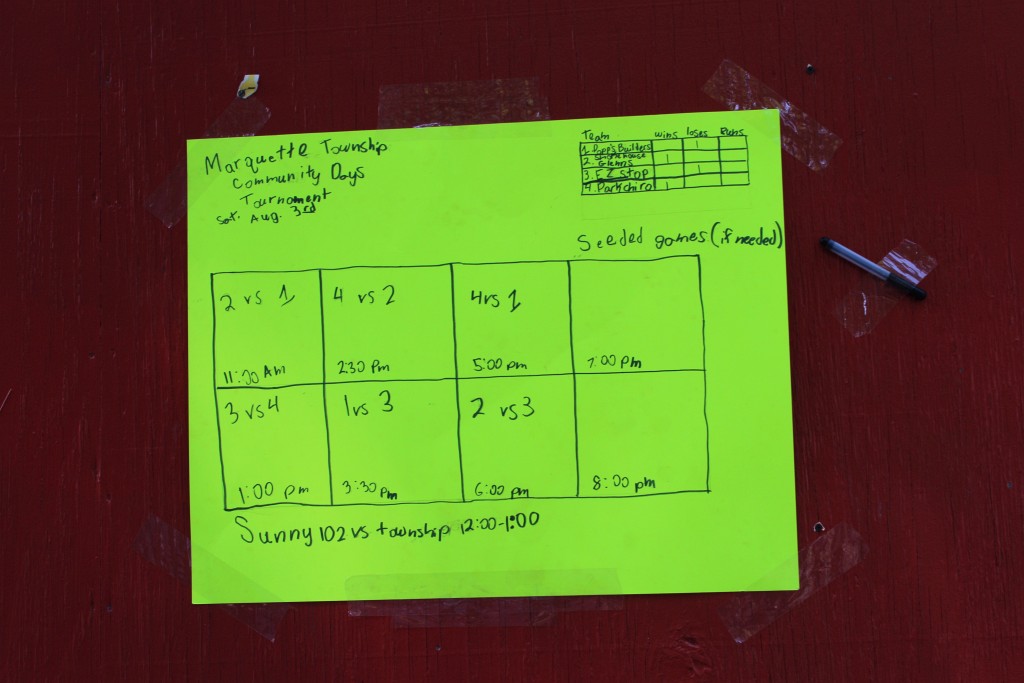 Marquette Township
Community Days
Tournament
Sat. Aug. 3rd
Team wins loses Runs
1. Popp's Builders 1
2. Stonehouse Glenns 1
3. EZ Stop 1
4. Parkchiro 1
Seeded games (if needed)
2 vs 1
4 vs 2
4 vs 1
11:00 Am
2:30 Pm
5:00 pm
7:00 pm
3 vs 4
1 vs 3
2 vs 3
1:00 pm
3:30 pm
6:00 pm
8:00 pm
Sunny 102 vs township 12:00-1:00